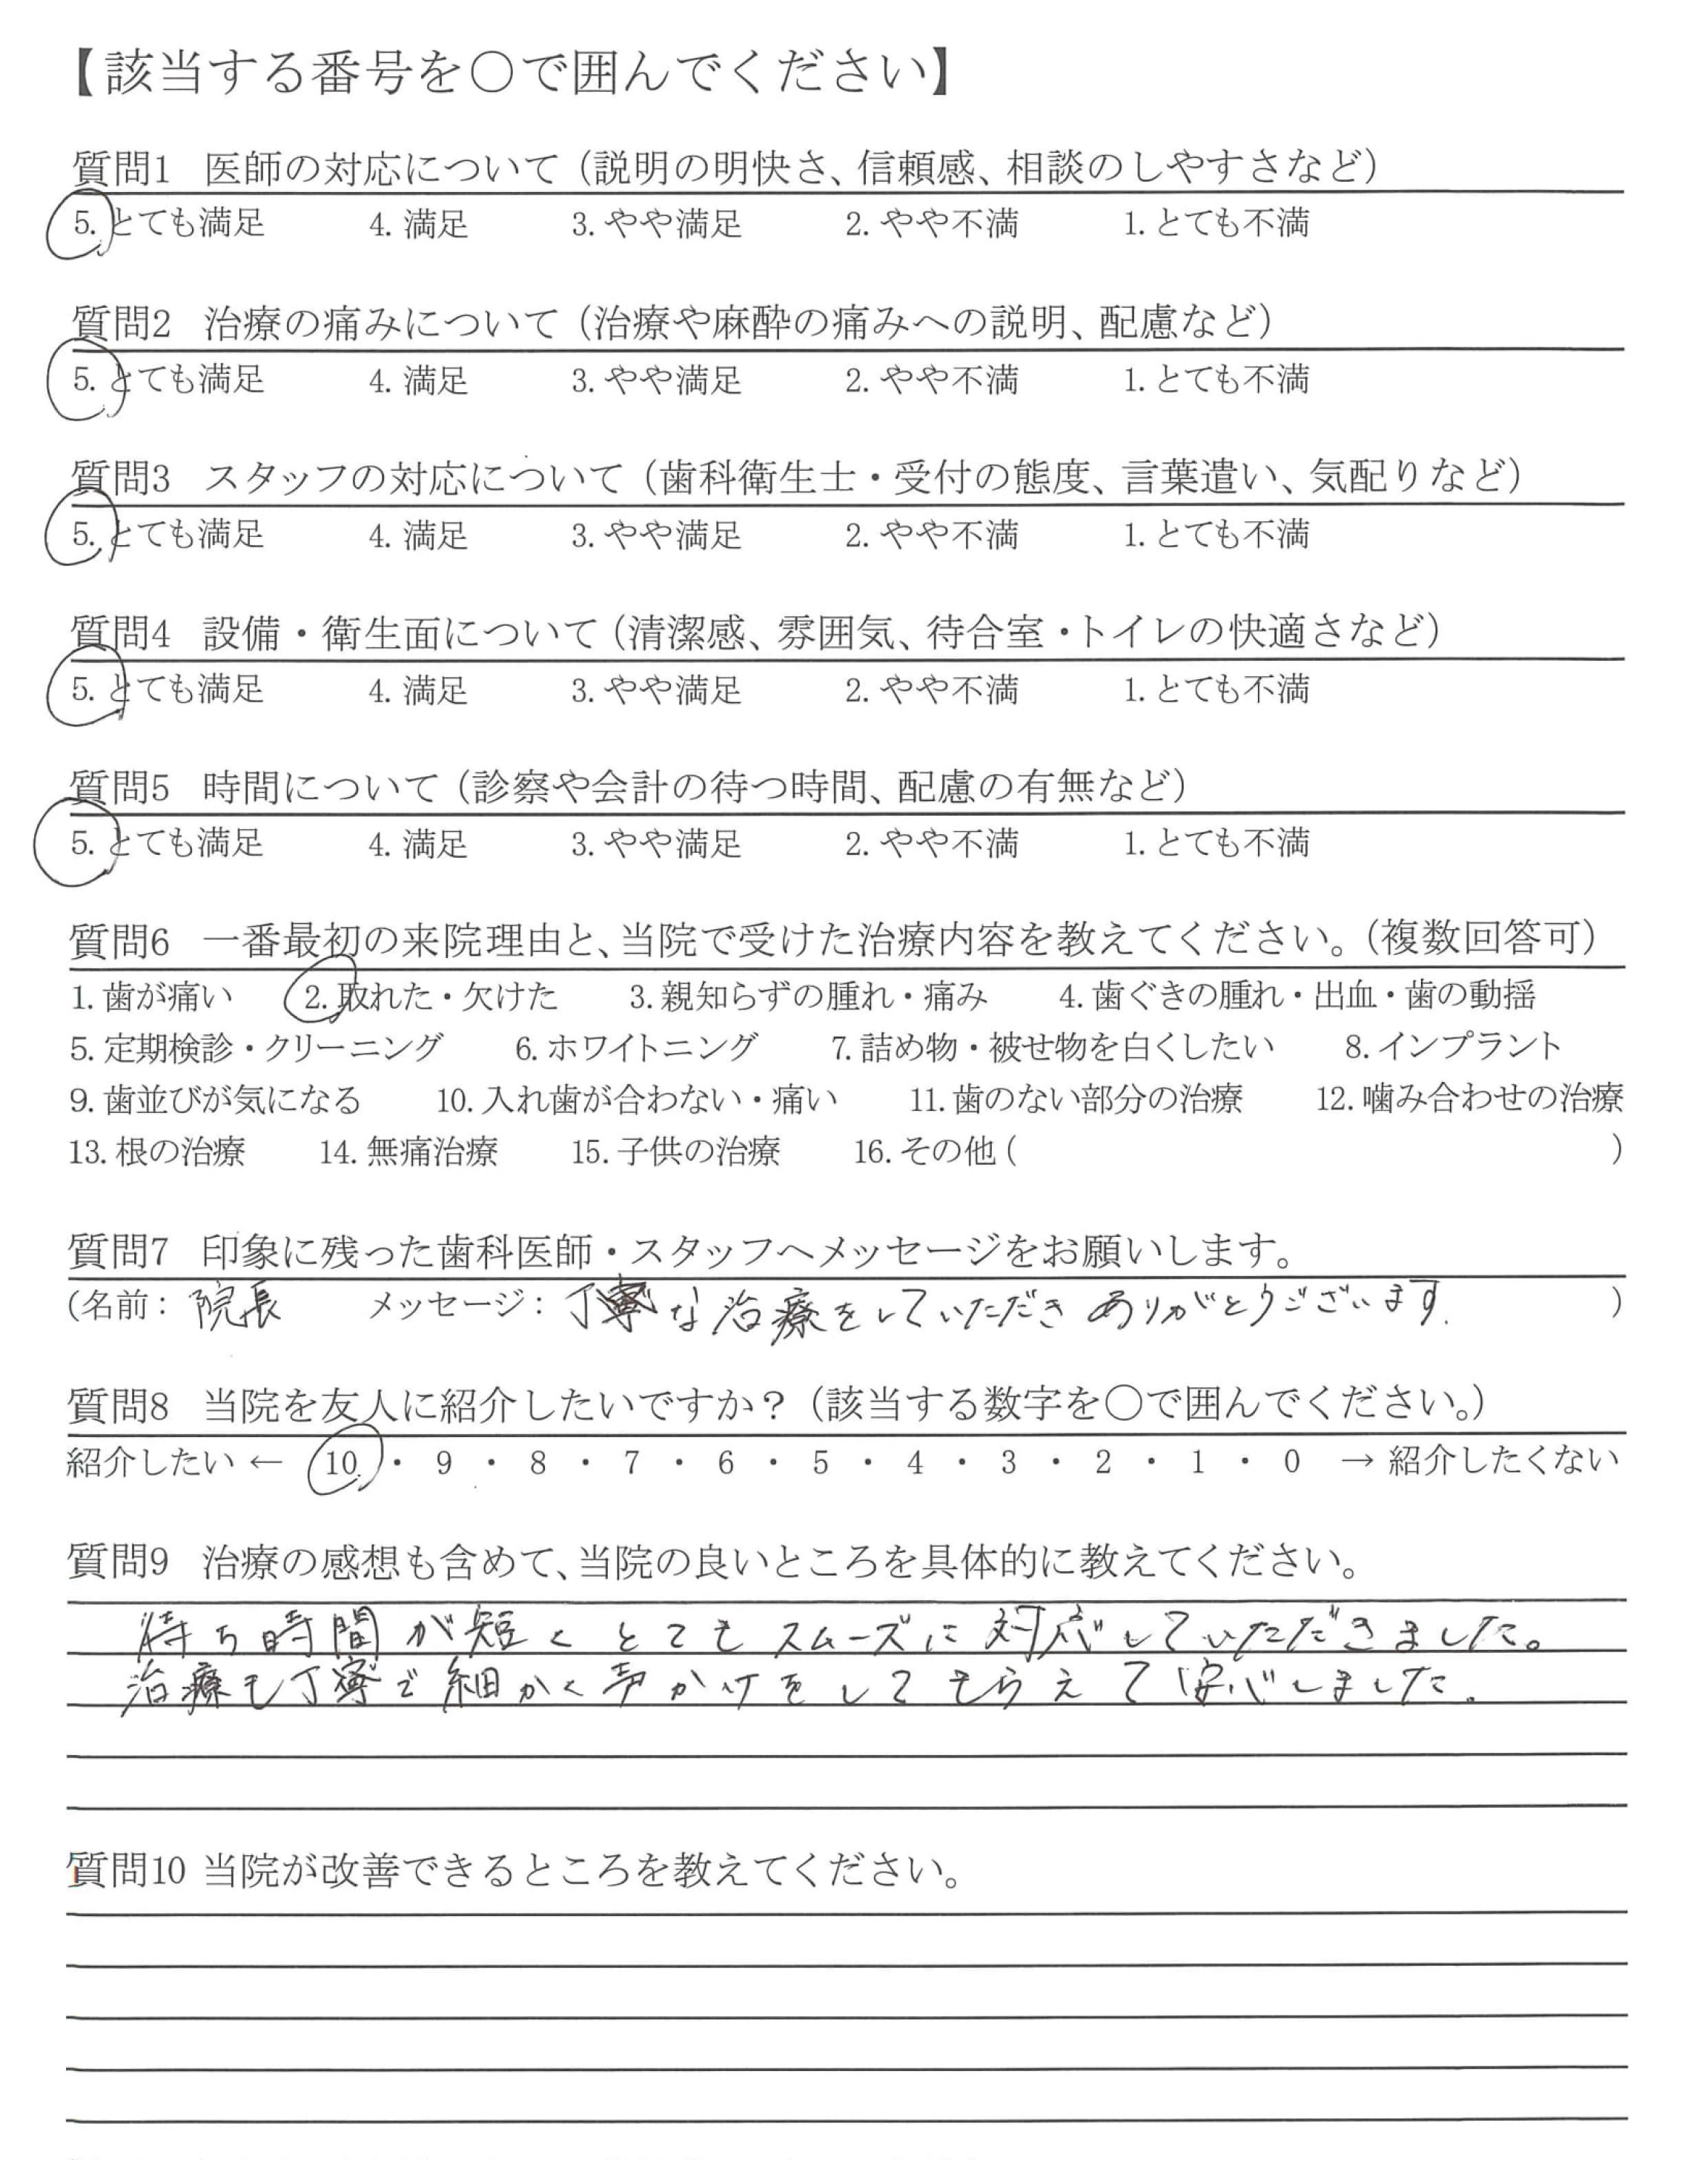 【該当する番号を〇で囲んでください】
質問1 医師の対応について（説明の明快さ、信頼感、相談のしやすさなど）
5. とても満足 4. 満足 3. やや満足 2. やや不満 1. とても不満
質問2 治療の痛みについて（治療や麻酔の痛みへの説明、配慮など）
5. とても満足 4. 満足 3. やや満足 2. やや不満 1. とても不満
質問3 スタッフの対応について（歯科衛生士・受付の態度、言葉遣い、気配りなど）
5. とても満足 4. 満足 3. やや満足 2. やや不満 1. とても不満
質問4 設備・衛生面について（清潔感、雰囲気、待合室・トイレの快適さなど）
5. とても満足 4. 満足 3. やや満足 2. やや不満 1. とても不満
質問5 時間について（診察や会計の待つ時間、配慮の有無など）
5. とても満足 4. 満足 3. やや満足 2. やや不満 1. とても不満
質問6 一番最初の来院理由と、当院で受けた治療内容を教えてください。（複数回答可）
1. 歯が痛い 2. 取れた・欠けた 3. 親知らずの腫れ・痛み 4. 歯ぐきの腫れ・出血・歯の動揺
5. 定期検診・クリーニング 6. ホワイトニング 7. 詰め物・被せ物を白くしたい 8. インプラント
9. 歯並びが気になる 10. 入れ歯が合わない・痛い 11. 歯のない部分の治療 12. 噛み合わせの治療
13. 根の治療 14. 無痛治療 15. 子供の治療 16. その他（ ）
質問7 印象に残った歯科医師・スタッフへメッセージをお願いします。
（名前：院長 メッセージ：丁寧な治療をしていただきありがとうございます. ）
質問8 当院を友人に紹介したいですか？（該当する数字を〇で囲んでください。）
紹介したい ← 10 ・ 9 ・ 8 ・ 7 ・ 6 ・ 5 ・ 4 ・ 3 ・ 2 ・ 1 ・ 0 → 紹介したくない
質問9 治療の感想も含めて、当院の良いところを具体的に教えてください。
待ち時間が短くとてもスムーズに対応していただきました。
治療も丁寧で細かく声かけをしてもらえて安心しました.
質問10 当院が改善できるところを教えてください。